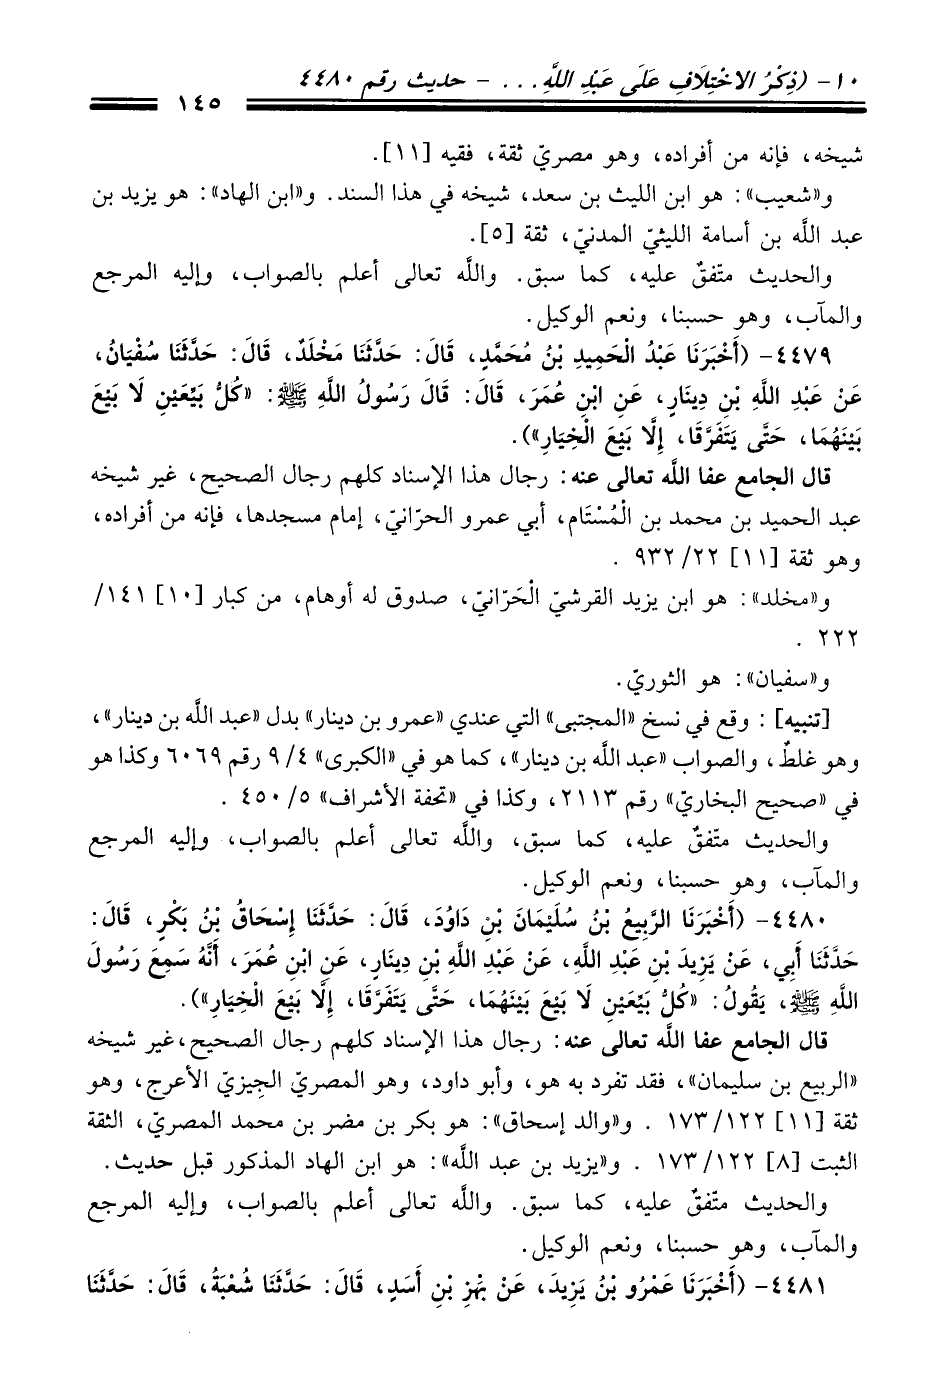 ١٠- (ذِكْرُ الاخْتِلَافِ عَلَى عَبْدِ اللَّهِ ... - حديث رقم ٤٤٨٠
١٤٥
شيخه، فإنه من أفراده، وهو مصريّ ثقة، فقيه [١١].
و«شعيب»: هو ابن الليث بن سعد، شيخه في هذا السند. و«ابن الهاد»: هو يزيد بن
عبد اللَّه بن أسامة الليثيّ المدنيّ، ثقة [٥].
والحديث متّفقٌ عليه، كما سبق. واللَّه تعالى أعلم بالصواب، وإليه المرجع
والمآب، وهو حسبنا، ونعم الوكيل.
٤٤٧٩- (أَخْبَرَنَا عَبْدُ الْحَمِيدِ بْنُ مُحَمَّدٍ، قَالَ: حَدَّثَنَا مَخْلَدٌ، قَالَ: حَدَّثَنَا سُفْيَانُ،
عَنْ عَبْدِ اللَّهِ بْنِ دِينَارٍ، عَنِ ابْنِ عُمَرَ، قَالَ: قَالَ رَسُولُ اللَّهِ ﷺ: «كُلُّ بَيِّعَيْنِ لَا بَيْعَ
بَيْنَهُمَا، حَتَّى يَتَفَرَّقَا، إِلَّا بَيْعَ الْخِيَارِ»).
قال الجامع عفا اللَّه تعالى عنه: رجال هذا الإسناد كلهم رجال الصحيح، غير شيخه
عبد الحميد بن محمد بن الْمُسْتَام، أبي عمرو الحرّانيّ، إمام مسجدها، فإنه من أفراده،
وهو ثقة [١١] ٢٢/ ٩٣٢ .
و«مخلد»: هو ابن يزيد القرشيّ الْحَرّانيّ، صدوق له أوهام، من كبار [١٠] ١٤١/
٢٢٢ .
و«سفيان»: هو الثوريّ.
[تنبيه] : وقع في نسخ «المجتبى» التي عندي «عمرو بن دينار» بدل «عبد اللَّه بن دينار»،
وهو غلطٌ، والصواب «عبد اللَّه بن دينار»، كما هو في «الكبرى» ٩/٤ رقم ٦٠٦٩ وكذا هو
في «صحيح البخاريّ» رقم ٢١١٣، وكذا في «تحفة الأشراف» ٥/ ٤٥٠ .
والحديث متّفقٌ عليه، كما سبق، واللَّه تعالى أعلم بالصواب، وإليه المرجع
والمآب، وهو حسبنا، ونعم الوكيل.
٤٤٨٠- (أَخْبَرَنَا الرَّبِيعُ بْنُ سُلَيْمَانَ بْنِ دَاوُدَ، قَالَ: حَدَّثَنَا إِسْحَاقُ بْنُ بَكْرٍ، قَالَ:
حَدَّثَنَا أَبِي، عَنْ يَزِيدَ بْنِ عَبْدِ اللَّهِ، عَنْ عَبْدِ اللَّهِ بْنِ دِينَارٍ، عَنِ ابْنِ عُمَرَ، أَنَّهُ سَمِعَ رَسُولَ
اللَّهِ ﷺ، يَقُولُ: «كُلُّ بَيِّعَيْنِ لَا بَيْعَ بَيْنَهُمَا، حَتَّى يَتَفَرَّقَا، إِلَّا بَيْعَ الْخِيَارِ»).
قال الجامع عفا اللَّه تعالى عنه: رجال هذا الإسناد كلهم رجال الصحيح،غير شيخه
«الربيع بن سليمان»، فقد تفرد به هو، وأبو داود، وهو المصريّ الجِيزيّ الأعرج، وهو
ثقة [١١] ١٧٣/١٢٢ . و«والد إسحاق»: هو بكر بن مضر بن محمد المصريّ، الثقة
الثبت [٨] ١٧٣/١٢٢ . و«يزيد بن عبد اللَّه»: هو ابن الهاد المذكور قبل حديث.
والحديث متّفقٌ عليه، كما سبق. واللَّه تعالى أعلم بالصواب، وإليه المرجع
والمآب، وهو حسبنا، ونعم الوكيل.
٤٤٨١- (أَخْبَرَنَا عَمْرُو بْنُ يَزِيدَ، عَنْ بَهْزِ بْنِ أَسَدٍ، قَالَ: حَدَّثَنَا شُعْبَةُ، قَالَ: حَدَّثَنَا